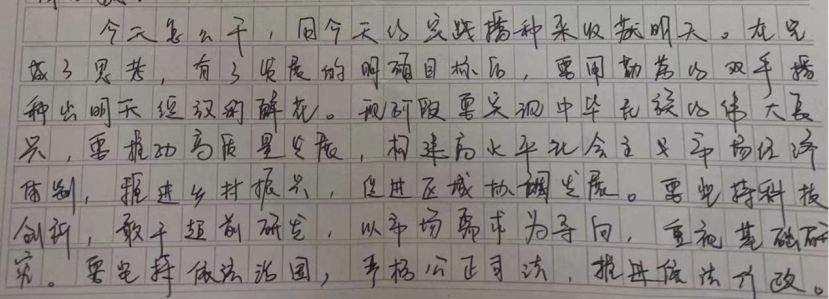 今天怎么干，用今天的实践播种来收获明天。在完
成了思考，有了发展的明确目标后，要用勤劳的双手播
种出明天绽放的鲜花。现阶段要实现中华民族的伟大复
兴，要推动高质量发展，构建高水平社会主义市场经济
体制，推进乡村振兴，促进区域协调发展。要坚持科技
创新，敢于超前研发，以市场需求为导向，重视基础研
究。要坚持依法治国，严格公正司法，推进依法行政。